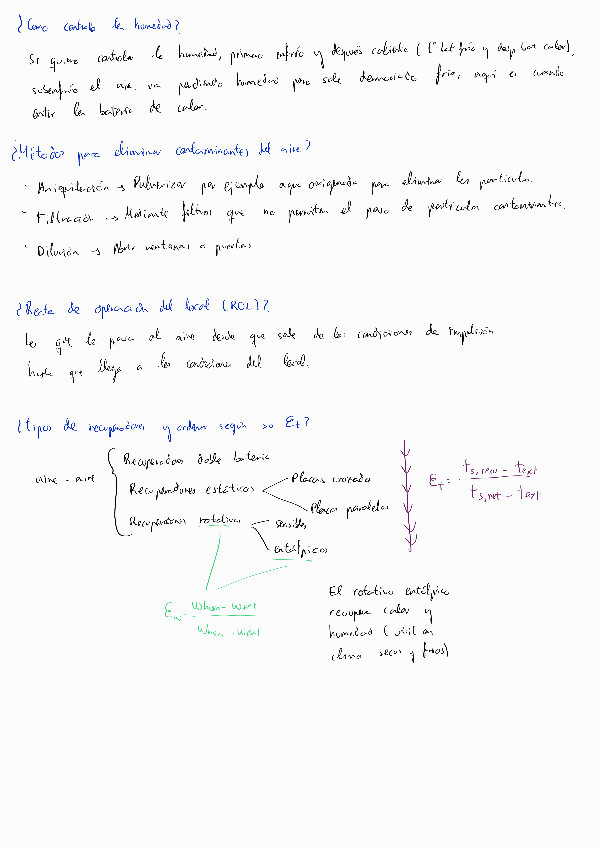 ¿Como controlo la humedad?
Si quiero controlar la humedad, primero enfrío y después caliento (1º bat frío y desp bat calor),
subenfrío el aire, va perdiendo humedad pero sale demasiado frío, aquí es cuando
entra la batería de calor.
¿Métodos para eliminar contaminantes del aire?
· Aniquilación → Pulverizar por ejemplo agua oxigenada para eliminar las partículas.
· Filtración → Mediante filtros que no permitan el paso de partículas contaminantes.
· Dilución → Abrir ventanas o puertas
¿Recta de operación del local (ROL)?
Les que le pasa al aire desde que sale de las condiciones de impulsión
hasta que llega a las condiciones del local.
¿Tipos de recuperadores y orden según su Et?
aire - aire
Recuperadores doble batería
Recuperadores estáticos
Placas cruzado
Placas paralelas
Recuperadores rotativos
sensibles
entálpicos
Et = ts,rec - text
ts,ret - text
Ew =
El rotativo entálpico
recupera calor y
humedad (útil en
clima secos y fríos)